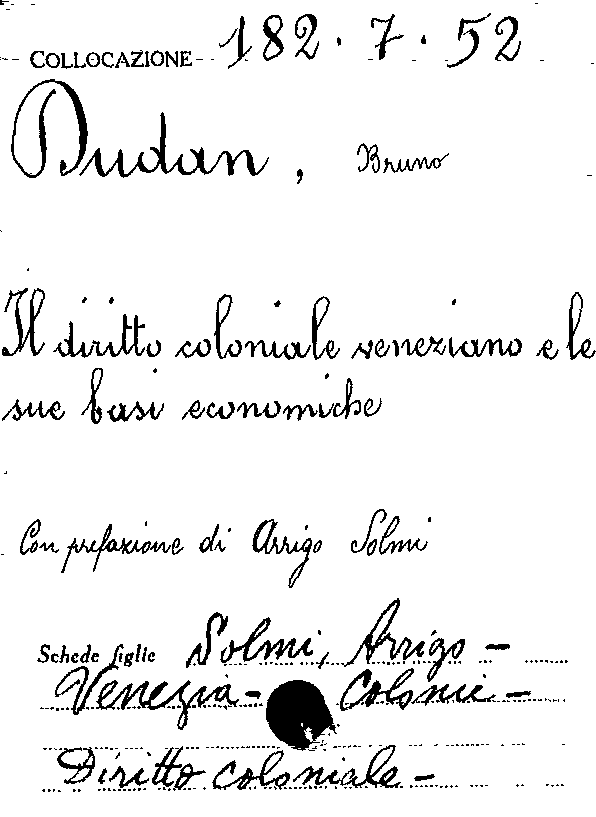 COLLOCAZIONE 182.7.52
Dudan, Bruno
Il diritto coloniale veneziano e le
sue basi economiche
Con prefazione di Arrigo Solmi
Schede figlie Solmi, Arrigo -
Venezia - Colonie -
Diritto coloniale -